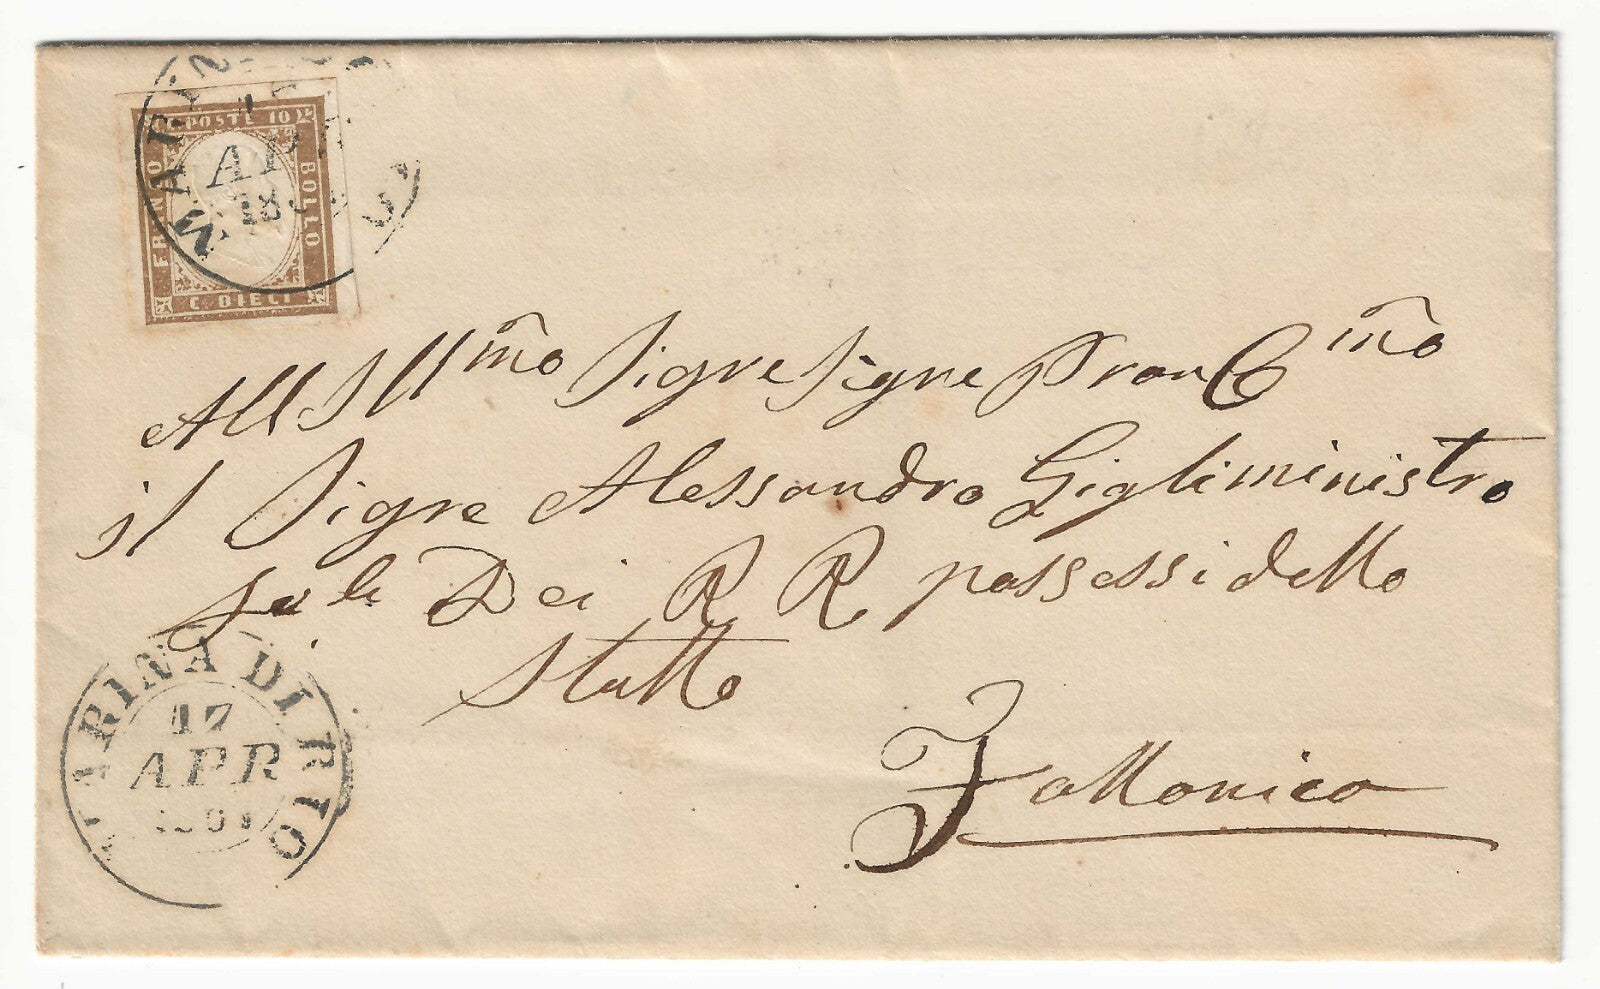 C. POSTE 10
FRANCO
BOLLO
C. DIECI
MARIN
APR
18
All Illmo Sigre Sigre Pron Cmo
il Sigre Alessandro Gigli ministro
Dei R R possessi dello
Statto
Fallonico
MARINA DI RIO
17
APR
1861